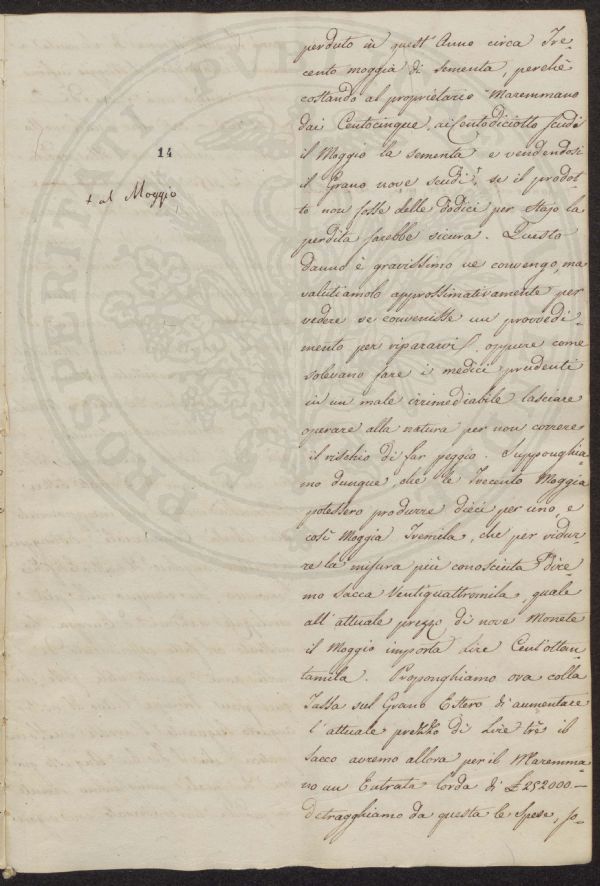 14
+ al Moggio
perduto in quest'Anno circa Tre-
cento moggia di sementa, perchè
costando al proprietario Maremmano
dai Centocinque, ai Centodiciotto scudi
il Moggio la sementa e vendendosi
il Grano nove scudi +, se il prodot-
to non fosse delle Dodici per Stajo la
perdita sarebbe sicura. Questo
danno è gravissimo ne convengo, ma
valutiamolo approssimativamente per
vedere se convenisse un provvedi-
mento per ripararvi, oppure come
solevano fare i medici prudenti
in un male irrimediabile lasciare
operare alla natura per non correre
il rischio di far peggio. Supponghia-
mo dunque, che le Trecento Moggia
potessero produrre dieci per uno, e
così Moggia Tremila, che per ridur-
re la misura più conosciuta dire-
mo Sacca Ventiquattromila, quale
all'attuale prezzo di nove Monete
il Moggio importa lire Cent'ottan-
tamila. Proponghiamo ora colla
Tassa sul Grano Estero di aumentare
l'attuale prezzo di Lire tre il
sacco avremo allora per il Maremma-
no un Entrata lorda di £ 252000.—
Detragghiamo da questa le Spese, so-
PROSPERITATI PVB